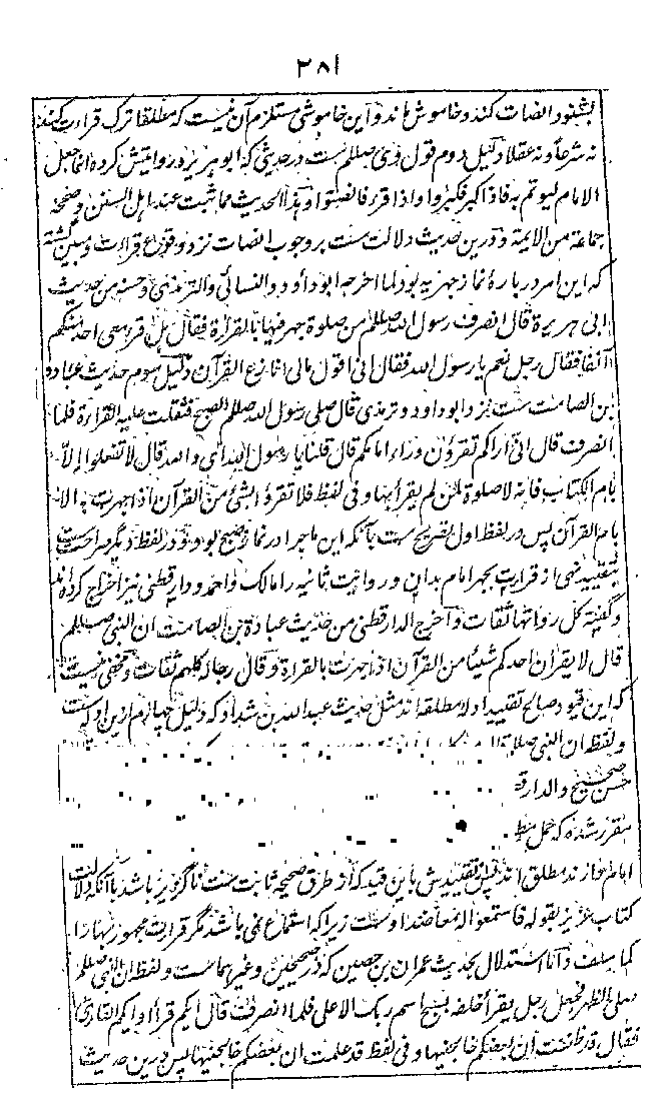 ۲۸۱
بشنود انصات کنند و خاموش مانند و این خاموشی مستلزم آن نیست که مطلقا ترک قراءت کنند
نه شرعا و نه عقلا دلیل دوم قول نبوی صلعم ست در حدیثی که ابو هریره روایتش کرده انما جعل
الامام لیوتم به فاذا کبر فکبروا واذا قرء فانصتوا و هذا الحدیث مما ثبت عند اهل السنن و صححه
جماعة من الایمة و درین حدیث دلالت ست بر وجوب انصات نزد وقوع قراءت و مبین گشته
که این امر در بارهٔ نماز جهریه بود لما اخرجه ابو داود والنسائی والترمذی و حسنه من حدیث
ابی هریرة قال انصرف رسول الله صلعم من صلوة جهر فیها بالقراءة فقال هل قرء معی احد منکم
آنفا فقال رجل نعم یا رسول الله فقال انی اقول مالی انازع القرآن دلیل سوم حدیث عباده
بن الصامت ست نزد ابو داود و ترمذی قال صلی رسول الله صلعم الصبح فثقلت علیه القراءة فلما
انصرف قال انی اراکم تقرؤن وراء امامکم قال قلنا یا رسول الله ای والله قال لا تفعلوا الا
بام الکتاب فانه لا صلوة لمن لم یقرأ بها و فی لفظ فلا تقرؤا بشئ من القرآن اذا جهرت به الا
بام القرآن پس در لفظ اول تصریح ست بآنکه این ماجرا در نماز صبح بود و در لفظ دیگر صراحت ست
بتقیید نهی از قراءت بجهر امام بدان و روایت ثانیه را مالک و احمد و دارقطنی نیز اخراج کرده اند
و گفته کل رواتها ثقات و اخرج الدارقطنی من حدیث عبادة بن الصامت ان النبی صلعم
قال لا یقرأن احدکم شیئا من القرآن اذا جهرت بالقراءة و قال رجاله کلهم ثقات و مخفی نیست
که این قیود صالح تقیید ادلهٔ مطلقه اند مثل حدیث عبدالله بن شداد که دلیل چهارم ازین ادله ست
و لفظه ان النبی صلعم
حسن صحیح والدارق
متقرر شده که حمل مط
امام خازند مطلق اند پس تقییدش باین قید که از طرق صحیحه ثابت ست ناگزیر باشد با آنکه دلالت
کتاب عزیز بقوله فاستمعوا له معاضد اوست زیرا که استماع نمی باشد مگر قراءت مجهور بها را
کما سلف و اما استدلال بحدیث عمران بن حصین که در صحیحین و غیرهماست و لفظه ان النبی صلعم
صلی الظهر فجعل رجل یقرأ خلفه بسبح اسم ربک الاعلی فلما انصرف قال ایکم قرأ او ایکم القاری
فقال قد ظننت ان بعضکم خالجنیها و فی لفظ قد علمت ان بعضکم خالجنیها پس درین حدیث